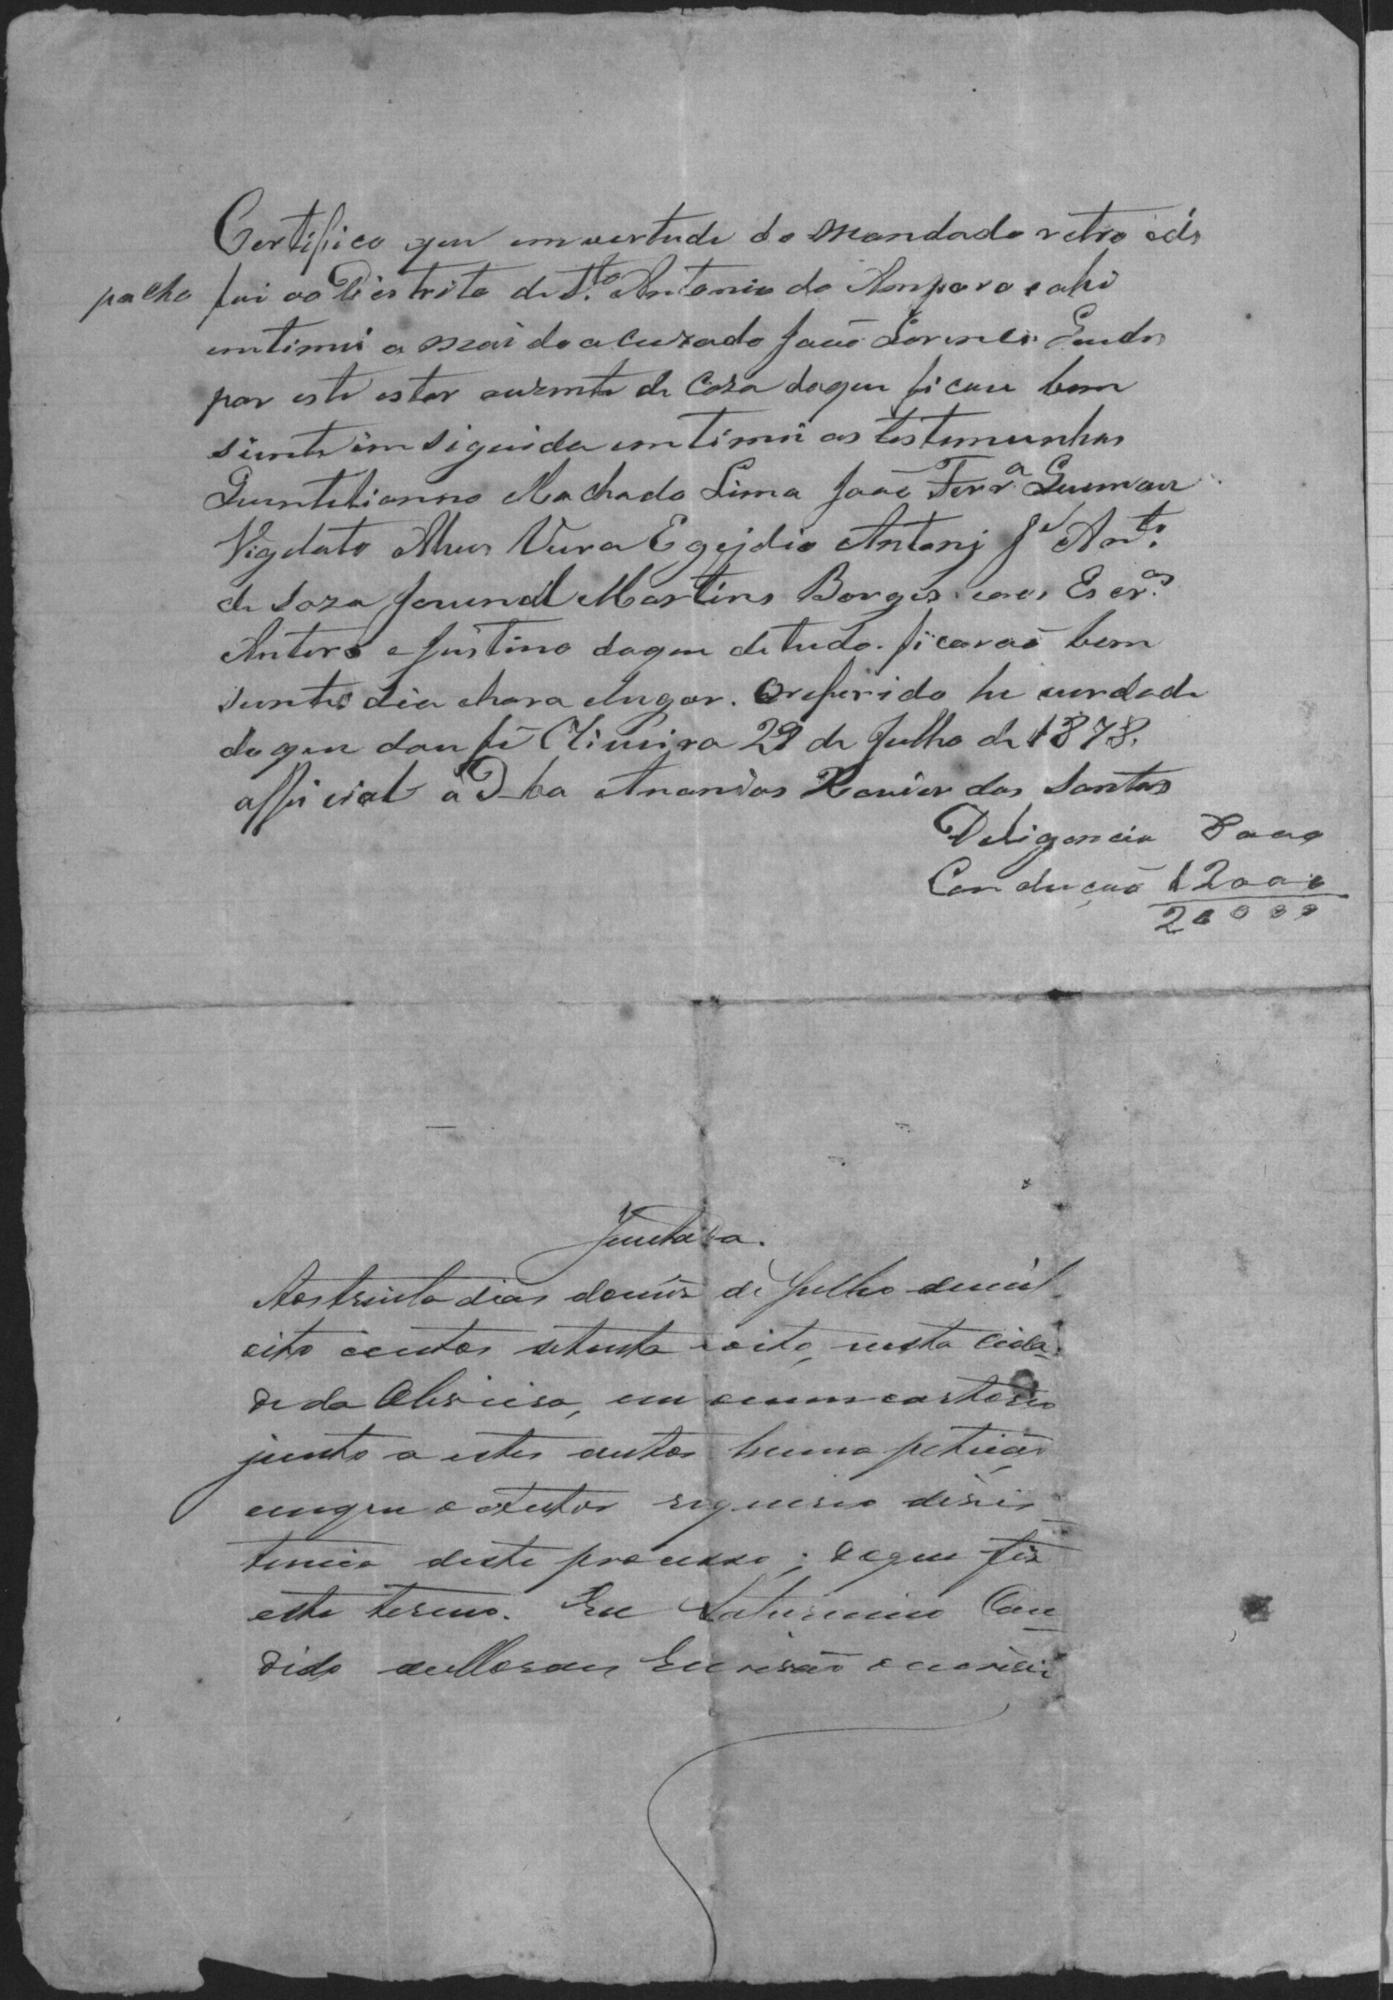 Certifico que em vertude do Mandado retro e dis
pacho fui ao Distrito de S.to Antonio do Amparo e ahi
intimei a Mai do acuzado João Lorenco
por este estar auzente de caza do que ficou bem
siente im siguida intimei as testemunhas
Quintilianno Machado Lima João Ferr.a
Vigilato Alves Egejdio Antonj J.e Ant.o
de Soza Jouvnal Martins Borges e aos Escr.os
Antero e Justino do que de tudo ficarão bem
sientes dia e hora e lugar. O referido he verdade
do que dou fé Oliveira 29 de Julho de 1878.
Afficial a Ananias Xavier dos Santos
Deligencia 8000
Condução 12000
20000
Juntada.
Aos trinta dias do mez de Julho de mil
oito centos setenta e oito, nesta Cida-
de da Oliveira, em o meu cartorio
junto a estes autos huma petição
em que o autor requereo desis-
tencia deste processo; do que fiz
este termo. Eu Saturnino Can-
dido de Moraes Escrivão o escrevi